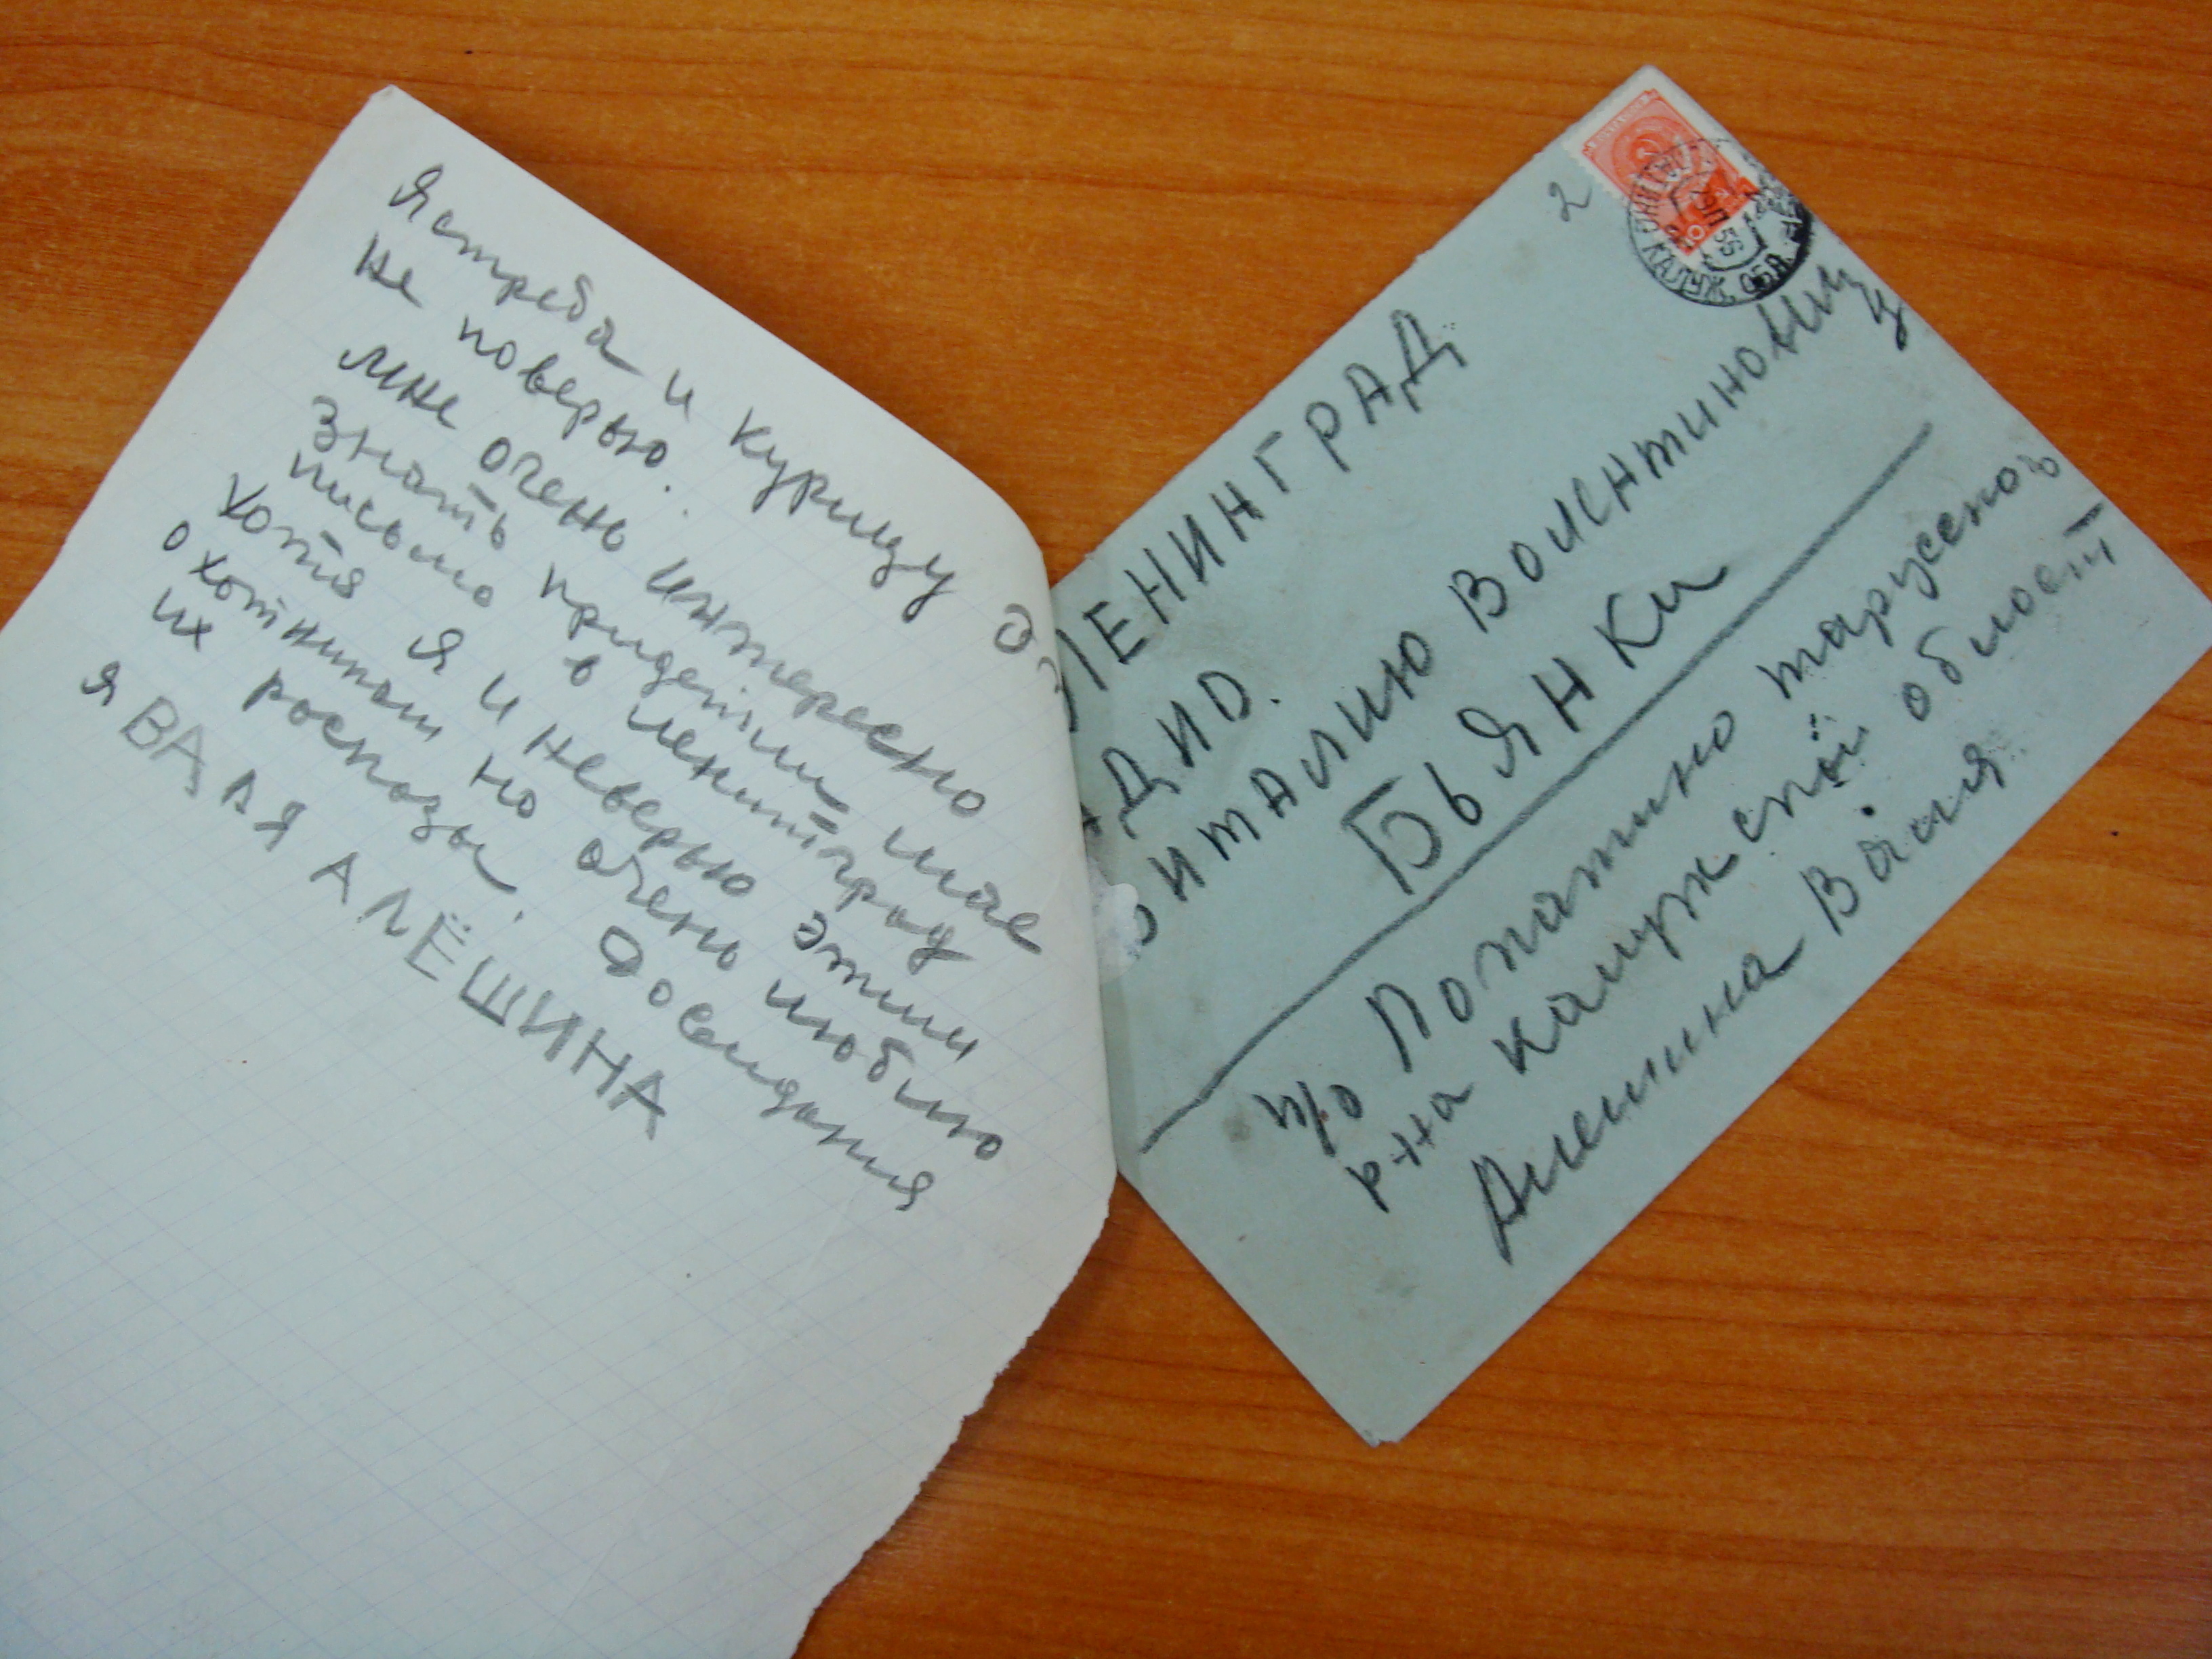 Ястреба и курицу
не поверью.
мне очень интересно
знать придетли мае
письмо в ленитград
хотя я и неверью этим
охотникам но очень люблю
их росказы. Досвидания
я ВАЛЯ АЛЁШИНА
2
КАЛУЖ. ОБЛ.
ЛЕНИНГРАД
АДИО.
ВИТАЛИЮ Волентиновичу
БЬЯНКи
п/о Похатино тарусског
р-на калужской област
Алешина Валя.